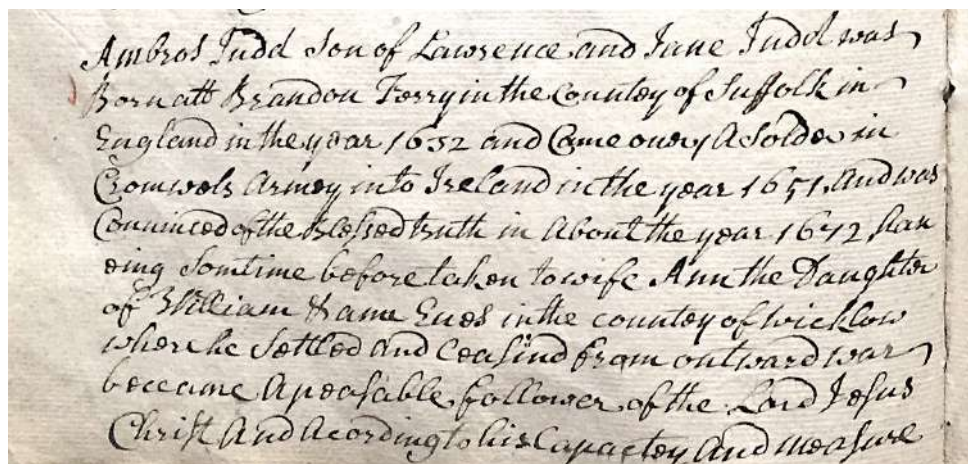 Ambros Judd Son of Lawrence and Jane Judd was
Born att Brandon Ferry in the Countey of Suffolk in
England in the year 1632 and Came over A Solder in
Cromwels Armey into Ireland in the year 1651 And was
Convinced of the Blessed truth in About the year 1672 hav
eing Somtime before taken to wife Ann the Daughter
of William & ann Eves in the countey of wicklow
where he Settled And Ceasind from outward war
became A peasable follower of the Lord Jesus
Christ And Acording to his Capactey And measure